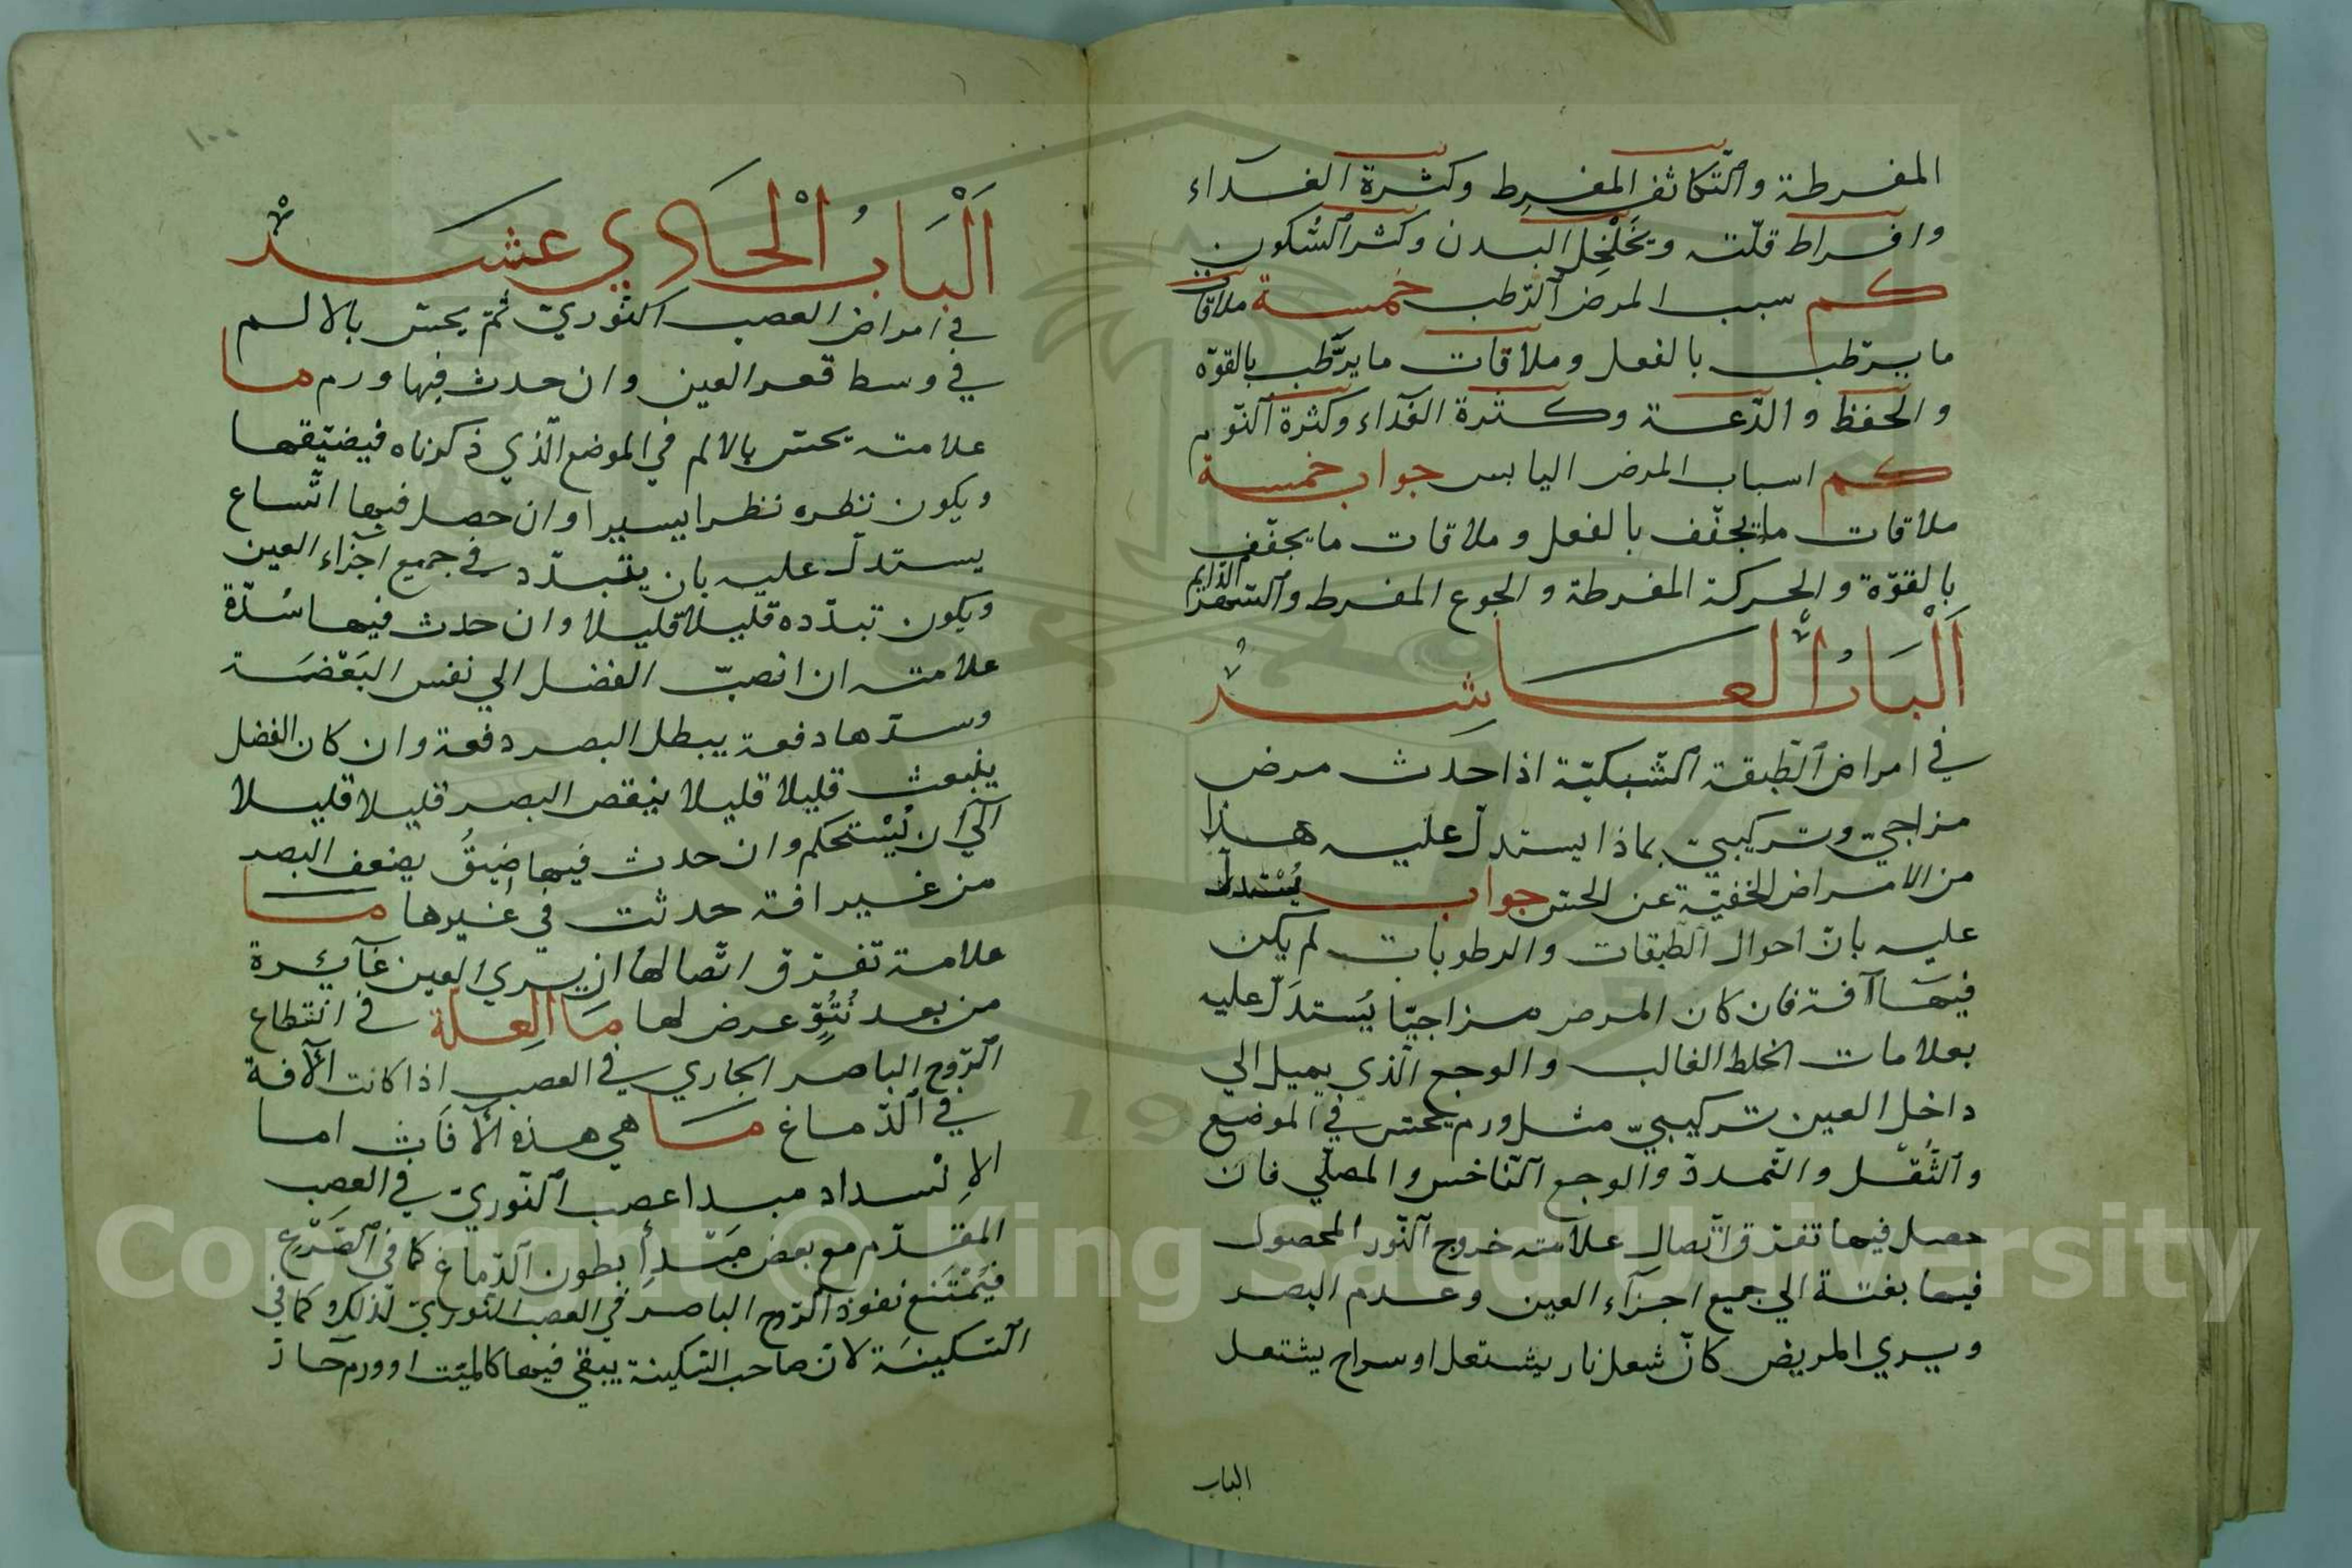 المفرطة والتّكاثف المفرط وكثرة الغداء
وافراط قلّته ويخلخل البدن وكثر السّكون
كم سبب المرض الرّطب خمسة ملاقات
ما يرّطب بالفعل وملاقات ما يرّطب بالقوّه
والحفظ والدّعة وكثرة الغداء وكثرة النّوم
كم اسباب المرض اليابس جواب خمسة
ملاقات ما يجفّف بالفعل وملاقات ما يجفّف
بالقوّة والحركة المفرطة والجوع المفرط والسّهر الدّايم
اَلْبَابُ الْعَاشرْ
في امراض الطّبقة الشّبكيّة اذا حدث مرض
مزاجيّ وتركيبيّ بماذا يستدلّ عليه هذا
من الامراض الخفيّة عن الحسّ جواب يُسْتدلّ
عليه بانّ احوال الطّبقات والرطوبات لم يكن
فيهَا آفة فان كان المرض مزاجيّا يُستدَلّ عليه
بعلامات الخلط الغالب والوجع الّذي يميل الي
داخل العين تركيبيّ مثل ورم يحسّ في الموضع
والثُّقل والتّمدد والوجع النّاخس والمصلّي فان
حصل فيها تفرّق اتّصال علامته خروج النّور المحصول
فيها بغتة الي جميع اجزآء العين وعدم البصر
ويري المريض كانّ شعل نار يشتعل او سراج يشتعل
الباب
١٠٠
اَلْبَابُ الْحَادي عشرْ
في امراض العصب النّوريّ ثمّ يحسّ بالالم
في وسط قعر العين وان حدث فيها ورم ما
علامته يحسّ بالالم في الموضع الّذي ذكرناه فيضيّقها
ويكون نظره نظرا يسيرا وان حصل فيها اتّساع
يستدلّ عليه بان يتبدّد في جميع اجزاء العين
ويكون تبدّده قليلا قليلا وان حدث فيها سُدّة
علامته ان انصبّ الفضل الي نفس
وسدّها دفعة يبطل البصر دفعة وان كان الفضل
ينبعث قليلا قليلا ينقص البصر قليلا قليلا
الي ان يُسْتحكم وان حدث فيها ضيقُ يضعف البصر
من غير افة حدثت في غيرها مَا
علامة تفرّق اتّصالها ان يري العين غآئرة
من بعد نُتُوٍّ عرض لها مَا الْعِلَّة في انقطاع
الرّوح الباصر الجاري في العصب اذا كانت الآفة
في الدّماغ مَا هي هذه الآفَات اما
الاِنْسداد مبدا عصب النّوريّ في العصب
المقدّم مع بعض مَبْدأ بطون الدّماغ كما في الصَّرْع
فيَمْتَنع نفوذ الرّوح الباصر في العصب النّوريّ لذلك وكما في
السّكينَة لانّ صاحب السّكينة يبقي فيها كالميّت او ورم حارّ